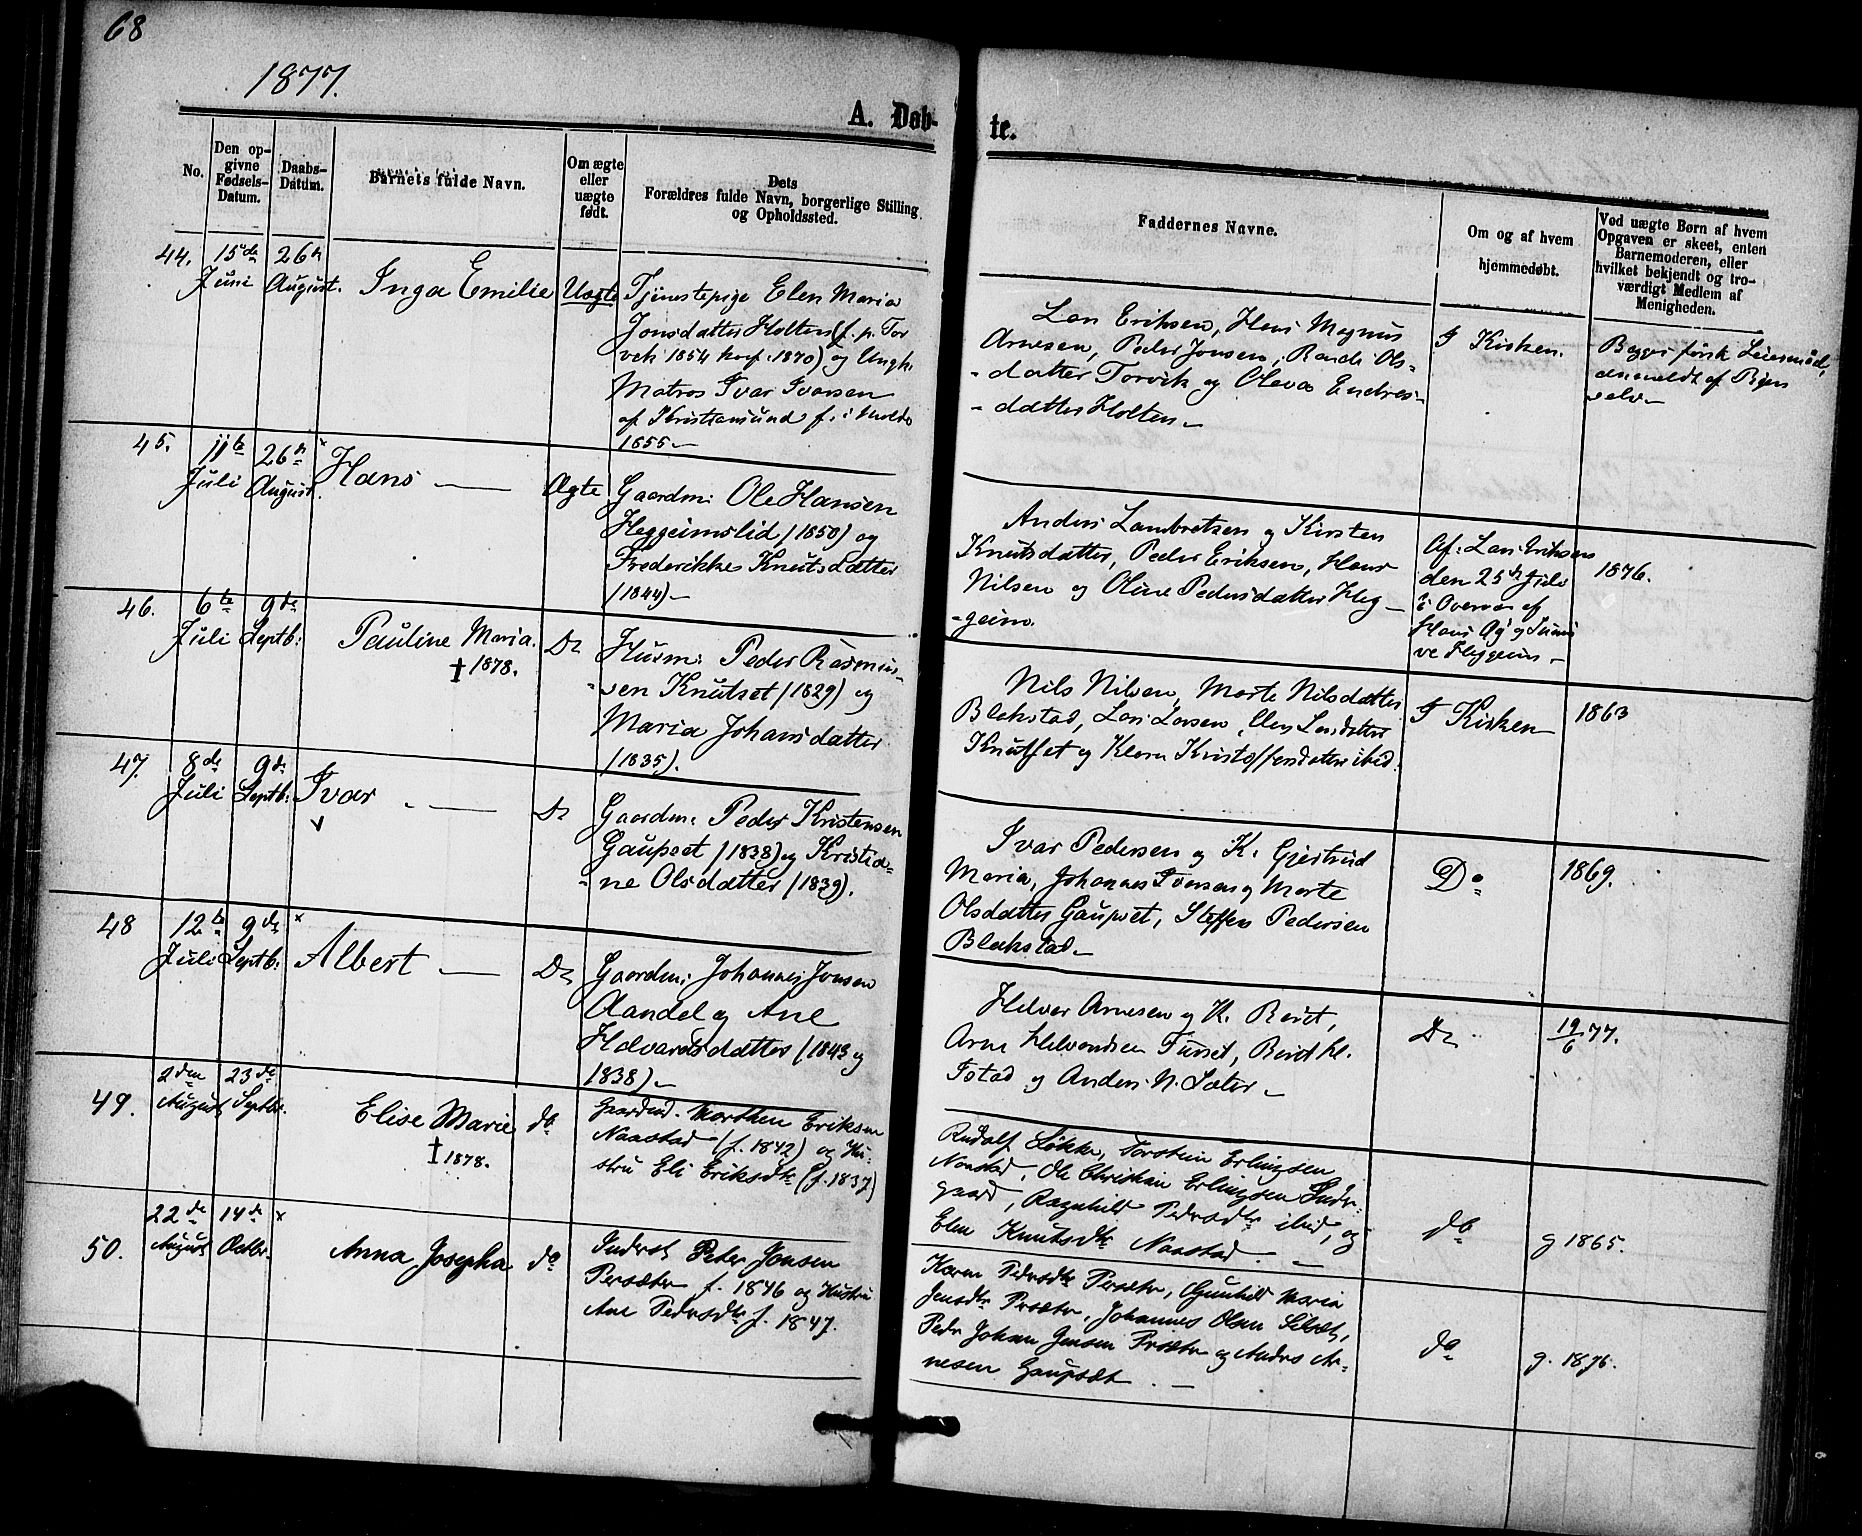 68
1877.
A. Døb-
te.
No.
Den op-
givne
Fødsels-
Datum.
Daabs-
Datum.
Barnets fulde Navn.
Om ægte
eller
uægte
født.
Dets
Forældres fulde Navn, borgerlige Stilling
og Opholdssted.
Faddernes Navne.
Om og af hvem
hjemmedøbt.
Ved uægte Børn af hvem
Opgaven er skeet, enten
Barnemoderen, eller
hvilket bekjendt og tro-
værdigt Medlem af
Menigheden.
44.
15de
Juni
26de
August.
Inga Emilie
Uægte
Tjenestepige Elen Maria
Jonsdatter Holten (f. p. Tor
vik 1854 konf. 1870) og Ungk.
Matros Ivar Ivarsen
af Kristiansund f. i Molde
1855
Lars Eriksen, Hans Magnus
Arnesen, Peder Jonsen, Ols-
datter Torvik og Oleva Endres-
datter Holten
I Kirken.
Begges første Leiermaal,
anmeldt af Pigen
selv
45.
11te
Juli
26de
August.
Hans
Ægte
Gaardm: Ole Hansen
Heggeimslid (1850) og
Frederikke Knutsdatter
(1844)
Anders Lambretsen og Kirsten
Knutsdatter, Peder Eriksen, Hans
Nilsen og Oline Pedersdatter Heg-
geim.
Af: Lars Eriksen
den 25de Juli
i Overvær af
Hans og
Heggeim
1876.
46.
6te
Juli
9de
Septb:
Pauline Maria.
† 1878.
Do
Husm: Peder Rasmus-
sen Knutset (1829) og
Maria Johansdatter
(1835).
Nils Nilsen, Marte Nilsdatter
Blakstad, Lars Larsen, Elen Larsdatter
Knutset og Klara Kristoffersdatter ibid.
I Kirken
1863
47.
8de
Juli
9de
Septb:
Ivar
Do
Gaardm: Peder Kristensen
Gaupset (1838) og Kristia-
ne Olsdatter (1839).
Ivar Pedersen og K. Gjertrud
Maria, Johannes Iversen og Marte
Olsdatter Gaupset, Steffen Pedersen
Blakstad
Do
1869.
48
12te
Juli
9de
Septb:
Albert
Do
Gaardm: Johannes Jonsen
Aandal og Ane
Halvardsdatter (1843 og
1838)
Halvor Arnesen og K. Berit,
Arne Halvardsen Furset, Berit H.
Istad og Anders N. Sæter
Do
19/6 77.
49.
2den
August
23de
Septbr.
Elise Marie
† 1878.
do
Gaardmd. Morthen Eriksen
Naastad (f. 1842) og Hu-
stru Eli Eriksdtr (f. 1837)
Rudolf Løkke, Torstein Erlingsen
Naastad, Ole Christian Erlingsen Inder-
gaard, Ragnhild Pedersdtr ibid, og
Elen Knutsdtr Naastad.
do
g 1865.
50.
22de
August
14de
Octbr.
Anna Josepha
do
Inderst Peter Jonsen
Persæter f. 1846 og Hustru
Ane Pedersdtr f. 1847.
Karen Pedersdtr Persæter, Gunhild Maria
Jensdtr Persæter, Johannes Olsen Silsæt,
Peder Johan Jensen Persæter og Anders Ar-
nesen Gaupsæt.
do
g. 1876.